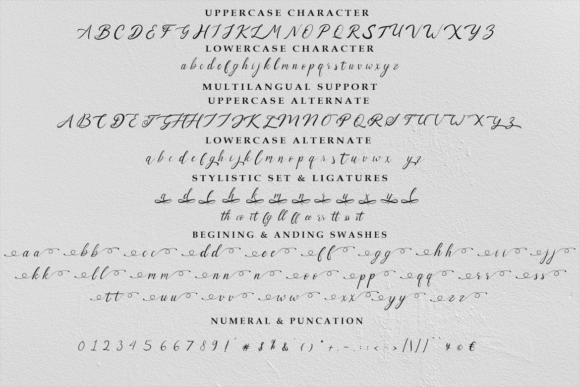 UPPERCASE CHARACTER
A B C D E F G H I J K L M N O P Q R S T U V W X Y Z
LOWERCASE CHARACTER
a b c d e f g h i j k l m n o p q r s t u v w x y z
MULTILANGUAL SUPPORT
UPPERCASE ALTERNATE
A B C D E F G H I J K L M N O P Q R S T U V W X Y Z
LOWERCASE ALTERNATE
a b c d e f g h i j k l m n o p q r s t u v w x y z
STYLISTIC SET & LIGATURES
BEGINING & ANDING SWASHES
aa bb cc dd ee ff gg hh ii jj
kk ll mm nn oo pp qq rr ss
tt uu vv ww xx yy zz
NUMERAL & PUNCATION
0 1 2 3 4 5 6 7 8 9 !